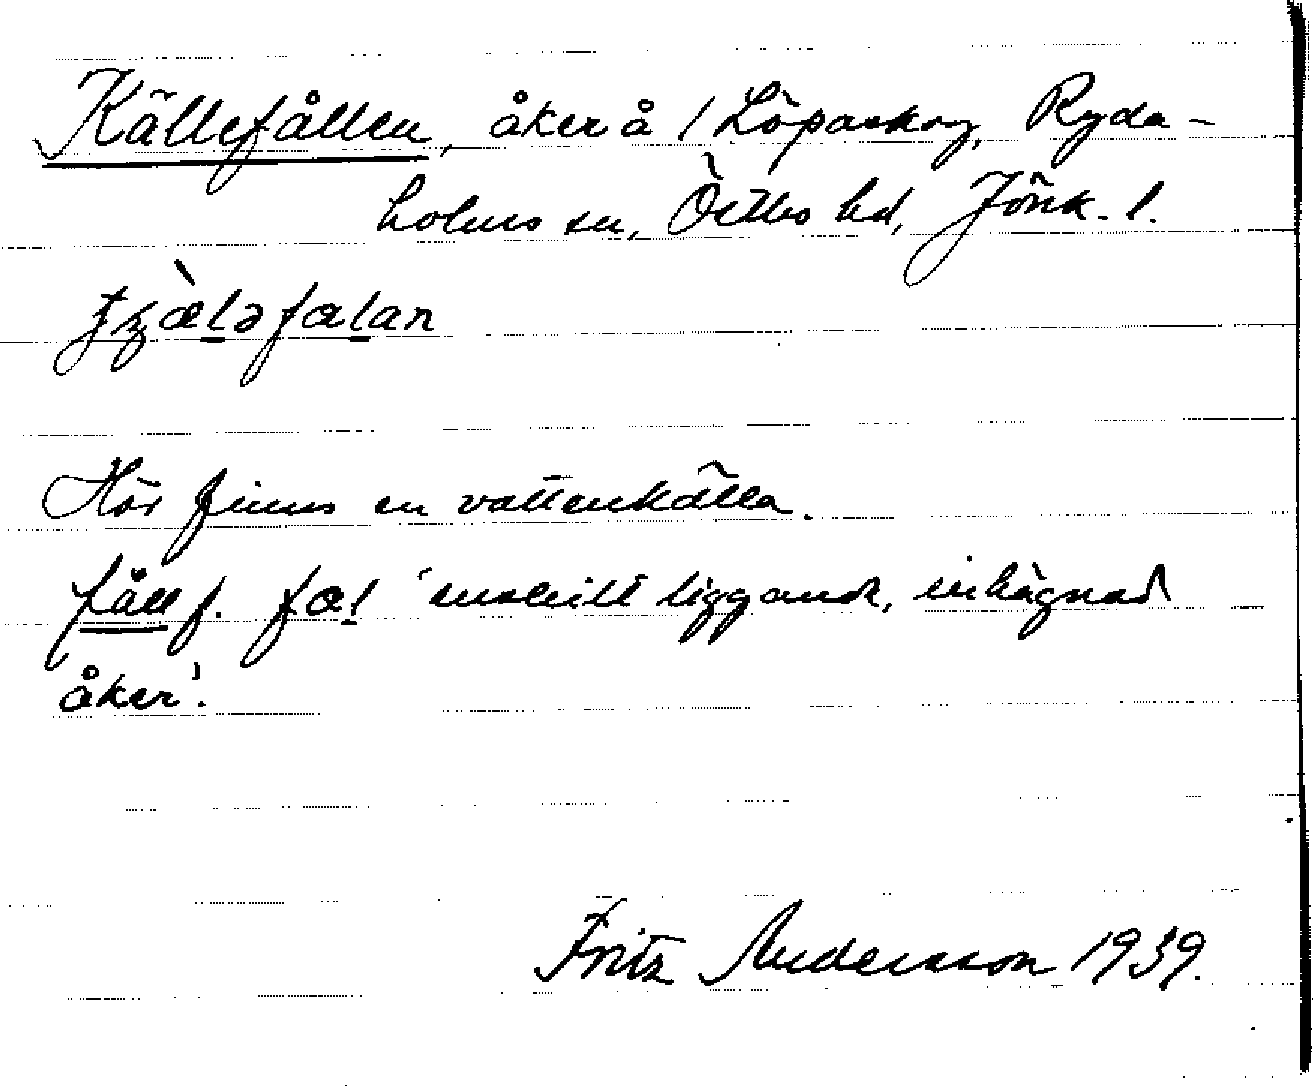 Källefållen, åker å 1 Löpaskog, Ryda-
holms sn, Östbo hd, Jönk. l.
Här finns en vattenkälla.
fåll f. fal 'enskilt liggande, inhägnad
åker'.
Fritz Andersson 1939.